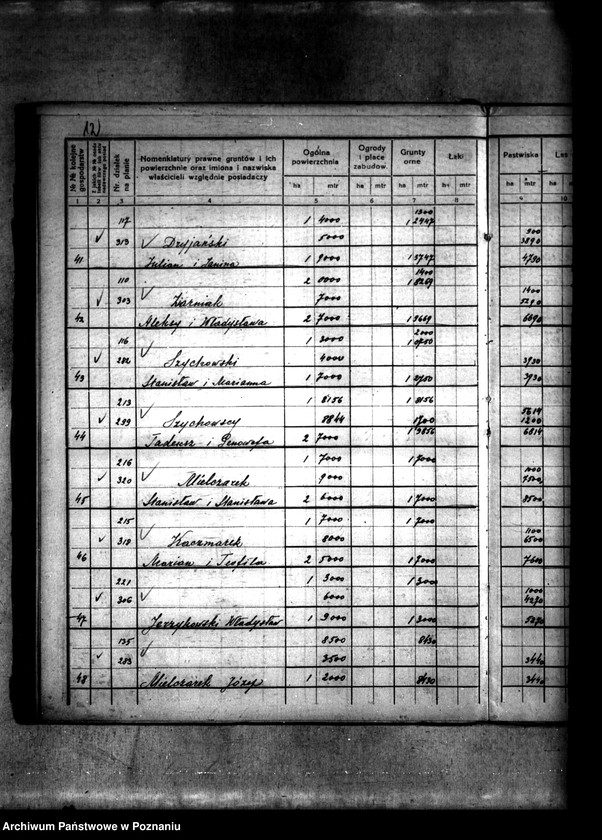 12)
№ № kolejne gospodarstw
Nr. działek na planie
Nomenklatury prawne gruntów i ich powierzchnie oraz imiona i nazwiska właścicieli względnie posiadaczy
Ogólna powierzchnia
Ogrody i place zabudow.
Grunty orne
Łąki
Pastwiska
Las
ha mtr ha mtr ha mtr ha mtr ha mtr ha
1 2 3 4 5 6 7 8 9 10
117 1 4000 1300 1 2447
313 Dryjański 5000 900 3890
41 Julian i Janina 1 9000 1 3747 4790
110 2 0000 1400 1 8269
303 7000 1400 5290
42 Aleksy i Władysława 2 7000 1 9669 6690
116 1 3000 2000 1 0750
282 Szychowski 4000 3930
43 Stanisław i Marianna 1 7000 1 2750 3930
213 1 8156 1 8156
299 Szychowscy 8844 1700 5614 1200
44 Tadeusz i Genowefa 2 7000 1 9856 6814
216 1 7000 1 7000
320 Mielczarek 9000 1000 7500
45 Stanisław i Stanisława 2 6000 1 7000 8500
215 1 7000 1 7000
318 Kaczmarek 8000 1100 6500
46 Marian i Teofila 2 5000 1 7000 7600
221 1 3000 1 3000
306 6000 1000 4270
47 Jerzykowski Władysław 1 9000 1 3000 5270
135 8500 8430
283 3500 3440
48 Mielczarek Józef 1 2000 8430 3440
Archiwum Państwowe w Poznaniu